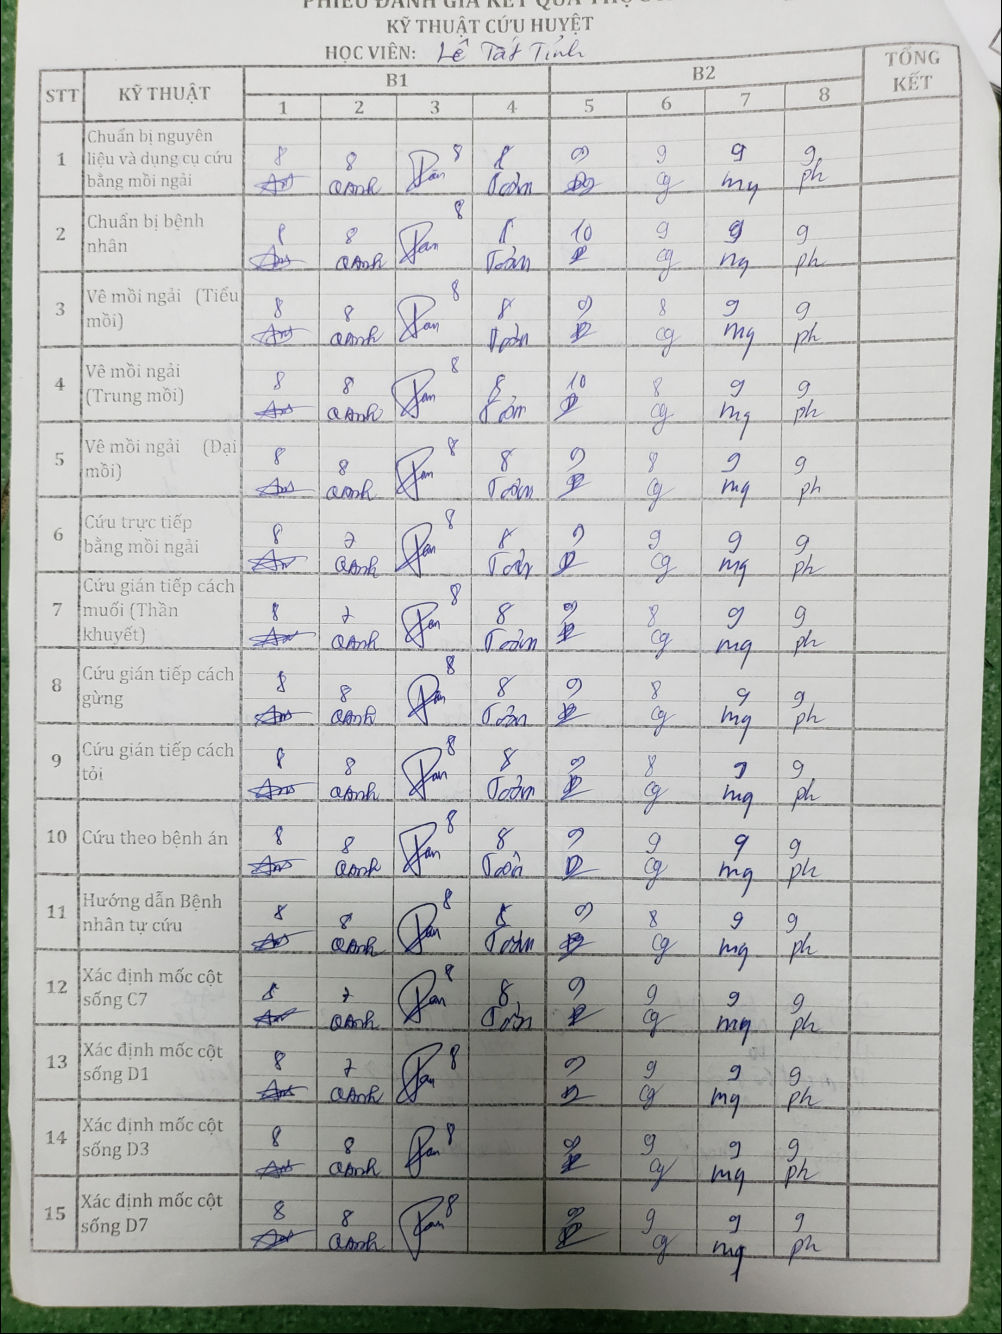 KỸ THUẬT CỨU HUYỆT
HỌC VIÊN: Lê Tất Tỉnh
STT KỸ THUẬT B1 B2 TỔNG KẾT
1 2 3 4 5 6 7 8
1 Chuẩn bị nguyên liệu và dụng cụ cứu bằng mồi ngải 8 8 8 8 9 9 9 9
QAnh Toản cg mq ph
2 Chuẩn bị bệnh nhân 8 8 8 8 10 9 9 9
QAnh Toản cg mq ph
3 Vê mồi ngải (Tiểu mồi) 8 8 8 8 9 8 9 9
QAnh Toản cg mq ph
4 Vê mồi ngải (Trung mồi) 8 8 8 8 10 8 9 9
QAnh Toản cg mq ph
5 Vê mồi ngải (Đại mồi) 8 8 8 8 9 8 9 9
QAnh Toản cg mq ph
6 Cứu trực tiếp bằng mồi ngải 8 7 8 8 9 9 9 9
QAnh Toản cg mq ph
7 Cứu gián tiếp cách muối (Thần khuyết) 8 7 8 8 9 8 9 9
QAnh Toản cg mq ph
8 Cứu gián tiếp cách gừng 8 8 8 8 9 8 9 9
QAnh Toản cg mq ph
9 Cứu gián tiếp cách tỏi 8 8 8 8 9 8 9 9
QAnh Toản cg mq ph
10 Cứu theo bệnh án 8 8 8 8 9 9 9 9
QAnh Toản cg mq ph
11 Hướng dẫn Bệnh nhân tự cứu 8 8 8 8 9 8 9 9
QAnh Toản cg mq ph
12 Xác định mốc cột sống C7 8 7 8 8 9 9 9 9
QAnh Toản cg mq ph
13 Xác định mốc cột sống D1 8 7 8 9 9 9 9
QAnh cg mq ph
14 Xác định mốc cột sống D3 8 8 8 9 9 9 9
QAnh cg mq ph
15 Xác định mốc cột sống D7 8 8 8 9 9 9 9
QAnh cg mq ph